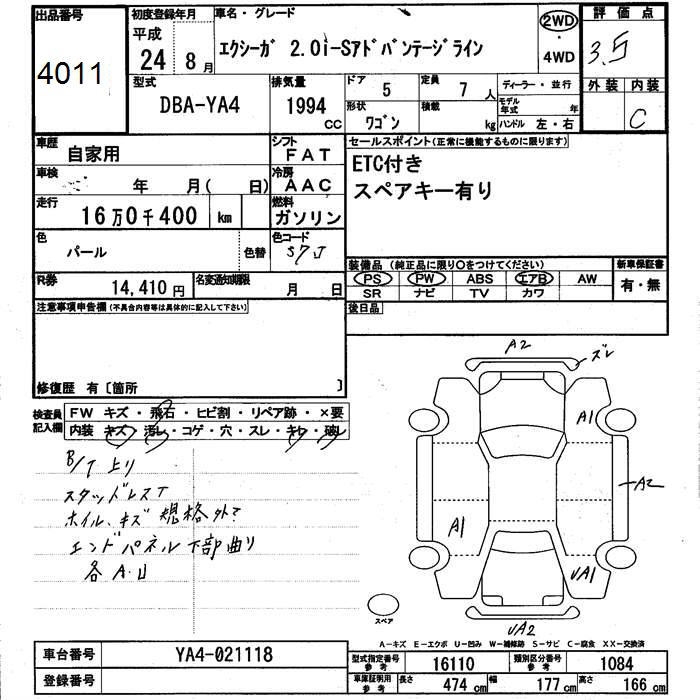 出品番号
4011
初度登録年月
平成
24 8月
車名・グレード
エクシーガ 2.0i-Sアドバンテージライン
2WD
4WD
評価点
3.5
外装 内装
C
型式
DBA-YA4
排気量
1994
CC
ドア
5
定員
7
人
ディーラー・並行
形状
ワゴン
積載
kg
モデル年式
年
ハンドル 左・右
車歴
自家用
シフト
FAT
車検
年 月( 日)
冷房
AAC
走行
16万0千400 km
燃料
ガソリン
色
パール
色替
色コード
S7J
R券
14,410円
名変通知期限
月 日
セールスポイント(正常に機能するものに限ります)
ETC付き
スペアキー有り
装備品(純正品に限り○をつけてください)
新車保証書
PS PW ABS エアB AW
有・無
SR ナビ TV カワ
後日品
注意事項申告欄(不具合内容等は具体的に記入して下さい)
修復歴 有〔箇所 〕
検査員
記入欄
FW キズ・飛石・ヒビ割・リペア跡・×要
内装 キズ・汚レ・コゲ・穴・スレ・キレ・破レ
B/T上リ
スタッドレスT
ホイル、キズ 規格外?
エンドパネル下部曲り
各A.U
A2
ズレ
A1
A2
A1
UA1
UA2
スペア
A-キズ E-エクボ U-凹み W-補修跡 S-サビ C-腐食 XX-交換済
車台番号
YA4-021118
登録番号
型式指定番号
参考
16110
類別区分番号
参考
1084
車庫証明用
参考
長さ
474 cm
幅
177 cm
高さ
166 cm